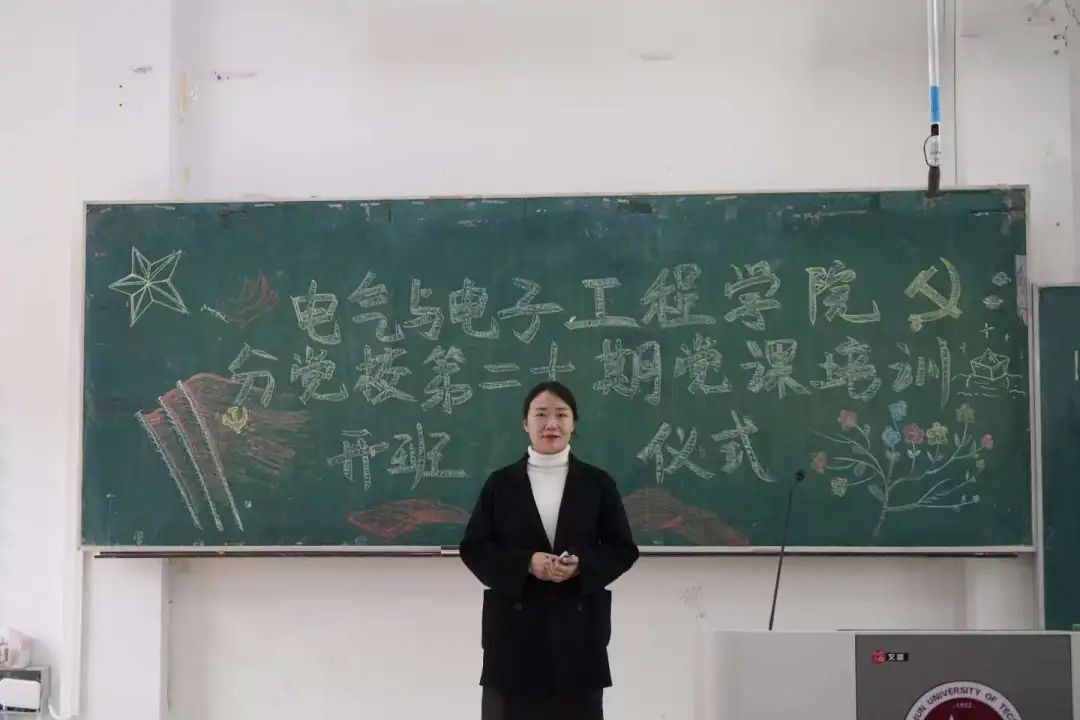 电气与电子工程学院
分党校第二十期党课培训
开班 仪式
HUN UNIVERSITY OF TECH
1952